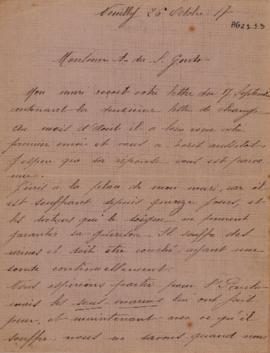 Neuilly 26 Octobre 17
AG2133
Monsieur A. da S. Gordo
Mon mari reçoit votre lettre du 17 Septembre
contenant la troisième lettre de change
du mois d'Août il a bien reçu votre
premier envoi et vous a écrit aussitôt.
J'espère que sa réponse vous est parve-
nue.
J'écris à la place de mon mari, car il
est souffrant depuis quinze jours, et
les docteurs qui le soignent ne peuvent
garantir sa guérison. Il souffre des
et doit être couché ayant une
sonde continuellement.
Nous espérions partir pour
mais les sous-marins lui ont fait
peur, et maintenant avec ce qu'il
souffre, nous ne savons quand nous